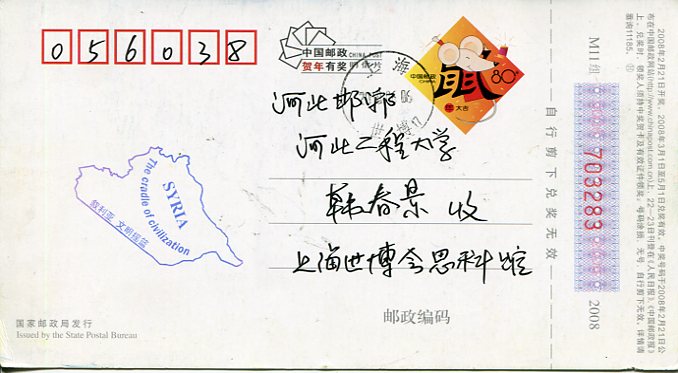 056038
中国邮政 CHINA POST
贺年有奖明信片
中国邮政
CHINA
鼠
80分
大吉
上海
世博
河北邯郸
河北工程大学
韩春景 收
上海世博会
SYRIA
The cradle of civilization
叙利亚 文明摇篮
国家邮政局发行
Issued by the State Postal Bureau
邮政编码
自行剪下兑奖无效
M11组
703283
2008
2008年2月21日开奖,2008年3月1日至5月1日兑奖有效。中奖号码于2008年2月21日公
布在中国邮政网站(http://www.chinapost.com.cn)上,22—23日刊登在《人民日报》、《中国邮政报》
上。兑奖时,领奖人须持中奖贺卡及有效证件领奖。号码涂损 无号、自行剪下无效,详情请
垂询11185。